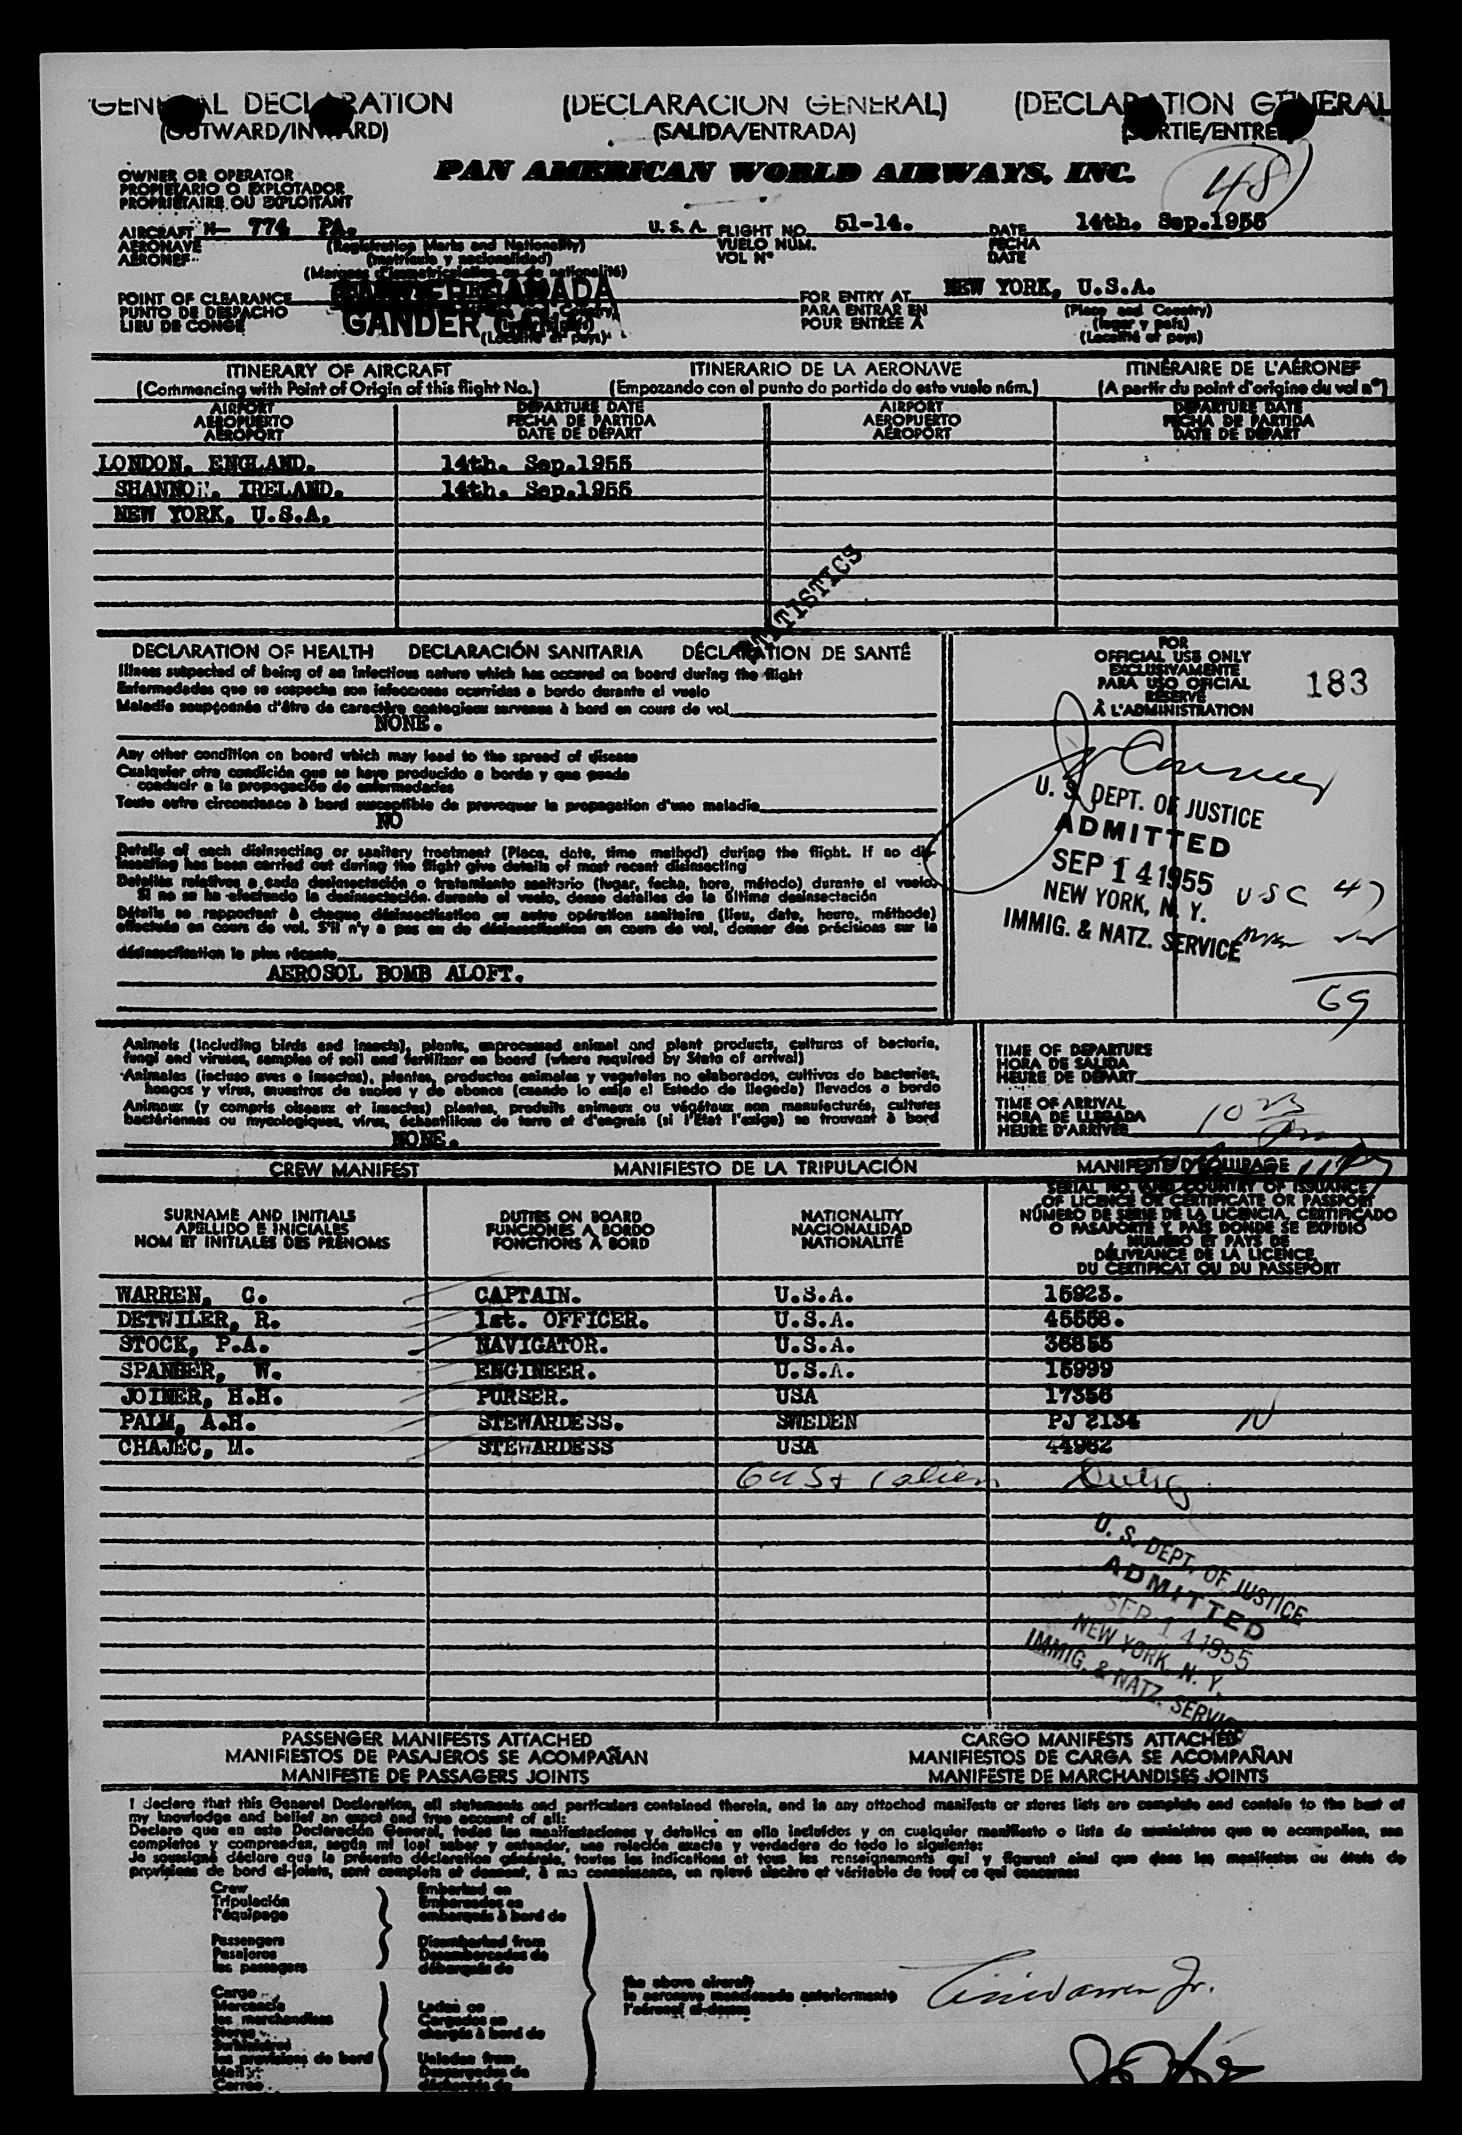 GENERAL DECLARATION (DECLARACION GENERAL) (DECLARATION GENERAL
(OUTWARD/INWARD) (SALIDA/ENTRADA) (SORTIE/ENTREE)
OWNER OR OPERATOR
PROPIETARIO O EXPLOTADOR
PROPRIÉTAIRE OU EXPLOITANT
PAN AMERICAN WORLD AIRWAYS, INC.
48)
AIRCRAFT N- 774 PA. U. S. A. FLIGHT NO. 51-14. DATE 14th. Sep.1955
AERONAVE (Registration Marks and Nationality) VUELO NUM. FECHA
AERONEF (matrícula y nacionalidad) VOL Nº DATE
(Marques d'immatriculation ou de nationalité)
POINT OF CLEARANCE FOR ENTRY AT NEW YORK, U.S.A.
PUNTO DE DESPACHO PARA ENTRAR EN (Place and Country)
LIEU DE CONGÉ GANDER POUR ENTRÉE À (lugar y país)
(Localité et pays) (Localité et pays)
ITINERARY OF AIRCRAFT ITINERARIO DE LA AERONAVE ITINÉRAIRE DE L'AÉRONEF
(Commencing with Point of Origin of this flight No.) (Empezando con el punto de partida de este vuelo núm.) (A partir du point d'origine du vol nº)
AIRPORT DEPARTURE DATE AIRPORT DEPARTURE DATE
AEROPUERTO FECHA DE PARTIDA AEROPUERTO FECHA DE PARTIDA
AÉROPORT DATE DE DÉPART AÉROPORT DATE DE DÉPART
LONDON. ENGLAND. 14th. Sep.1955
SHANNON. IRELAND. 14th. Sep.1955
NEW YORK, U.S.A.
STATISTICS
DECLARATION OF HEALTH DECLARACIÓN SANITARIA DÉCLARATION DE SANTÉ
Illness suspected of being of an infectious nature which has occured on board during the flight
Enfermedades que se sospecha son infecciosas ocurridas a bordo durante el vuelo
Maladie soupçonnée d'être de caractère contagieux survenue à bord en cours de vol
NONE.
Any other condition on board which may lead to the spread of disease
Cualquier otra condición que se haya producido a bordo y que pueda
conducir a la propagación de enfermedades
Toute autre circonstance à bord susceptible de provoquer la propagation d'une maladie
NO
Details of each disinsecting or sanitary treatment (Place, date, time method) during the flight. If no dis-
insecting has been carried out during the flight give details of most recent disinsecting
Detalles relativos a cada desinsectación o tratamiento sanitario (lugar, fecha, hora, método) durante el vuelo.
Si no se ha efectuado la desinsectación durante el vuelo, dense detalles de la última desinsectación
Détails se rapportant à chaque désinsectisation ou autre opération sanitaire (lieu, date, heure, méthode)
effectuée en cours de vol. S'il n'y a pas eu de désinsectisation en cours de vol, donner des précisions sur la
désinsectisation la plus récente
AEROSOL BOMB ALOFT.
FOR
OFFICIAL USE ONLY
EXCLUSIVAMENTE
PARA USO OFICIAL
RÉSERVÉ
À L'ADMINISTRATION
183
U. S. DEPT. OF JUSTICE
ADMITTED
SEP 14 1955
NEW YORK, N. Y.
IMMIG. & NATZ. SERVICE
USC 47
69
Animals (including birds and insects), plants, unprocessed animal and plant products, cultures of bacteria,
fungi and viruses, samples of soil and fertilizer on board (where required by State of arrival)
Animales (incluso aves e insectos), plantas, productos animales y vegetales no elaborados, cultivos de bacterias,
hongos y virus, muestras de suelos y de abonos (cuando lo exija el Estado de llegada) llevados a bordo
Animaux (y compris oiseaux et insectes) plantes, produits animaux ou végétaux non manufacturés, cultures
bactériennes ou mycologiques, virus, échantillons de terre et d'engrais (si l'État l'exige) se trouvant à bord
NONE.
TIME OF DEPARTURE
HORA DE SALIDA
HEURE DE DÉPART
TIME OF ARRIVAL
HORA DE LLEGADA
HEURE D'ARRIVÉE
CREW MANIFEST MANIFIESTO DE LA TRIPULACIÓN MANIFESTE D'ÉQUIPAGE
SURNAME AND INITIALS
APELLIDO E INICIALES
NOM ET INITIALES DES PRÉNOMS
DUTIES ON BOARD
FUNCIONES A BORDO
FONCTIONS À BORD
NATIONALITY
NACIONALIDAD
NATIONALITÉ
SERIAL NO. AND COUNTRY OF ISSUANCE
OF LICENCE OR CERTIFICATE OR PASSPORT
NÚMERO DE SERIE DE LA LICENCIA, CERTIFICADO
O PASAPORTE Y PAÍS DONDE SE EXPIDIÓ
NUMÉRO ET PAYS DE
DÉLIVRANCE DE LA LICENCE,
DU CERTIFICAT OU DU PASSEPORT
WARREN, C. CAPTAIN. U.S.A. 15923.
DETWILER, R. 1st. OFFICER. U.S.A. 45558.
STOCK, P.A. NAVIGATOR. U.S.A. 36855
SPANGER, W. ENGINEER. U.S.A. 15999
JOINER, H.H. PURSER. USA 17356
PALM, A.H. STEWARDESS. SWEDEN PJ 2134 N
CHAJEC, M. STEWARDESS USA 44962
U. S. DEPT. OF JUSTICE
ADMITTED
SEP 14 1955
NEW YORK, N. Y.
IMMIG. & NATZ. SERVICE
PASSENGER MANIFESTS ATTACHED CARGO MANIFESTS ATTACHED
MANIFIESTOS DE PASAJEROS SE ACOMPAÑAN MANIFIESTOS DE CARGA SE ACOMPAÑAN
MANIFESTE DE PASSAGERS JOINTS MANIFESTE DE MARCHANDISES JOINTS
I declare that this General Declaration, all statements and particulars contained therein, and in any attached manifests or stores lists are complete and contain to the best of
my knowledge and belief an exact and true account of all:
Declaro que en esta Declaración General, todas las manifestaciones y detalles en ella incluídos y en cualquier manifiesto o lista de suministros que se acompañen, son
completos y comprenden, según mi leal saber y entender, una relación exacta y verdadera de todo lo siguiente:
Je soussigné déclare que la présente déclaration générale, toutes les indications et tous les renseignements qui y figurent ainsi que dans les manifestes ou états de
provisions de bord ci-joints, sont complets et donnent, à ma connaissance, un relevé sincère et véritable de tout ce qui concerne:
Crew
Tripulación
l'équipage
Passengers
Pasajeros
les passagers
Cargo
Mercancía
les marchandises
Stores
Suministros
les provisions de bord
Mail
Correo
Embarked on
Embarcados en
embarqués à bord de
Disembarked from
Desembarcados de
débarqués de
Laden on
Cargados en
chargés à bord de
Unladen from
Descargados de
déchargés de
the above aircraft
la aeronave mencionada anteriormente
l'aéronef ci-dessus